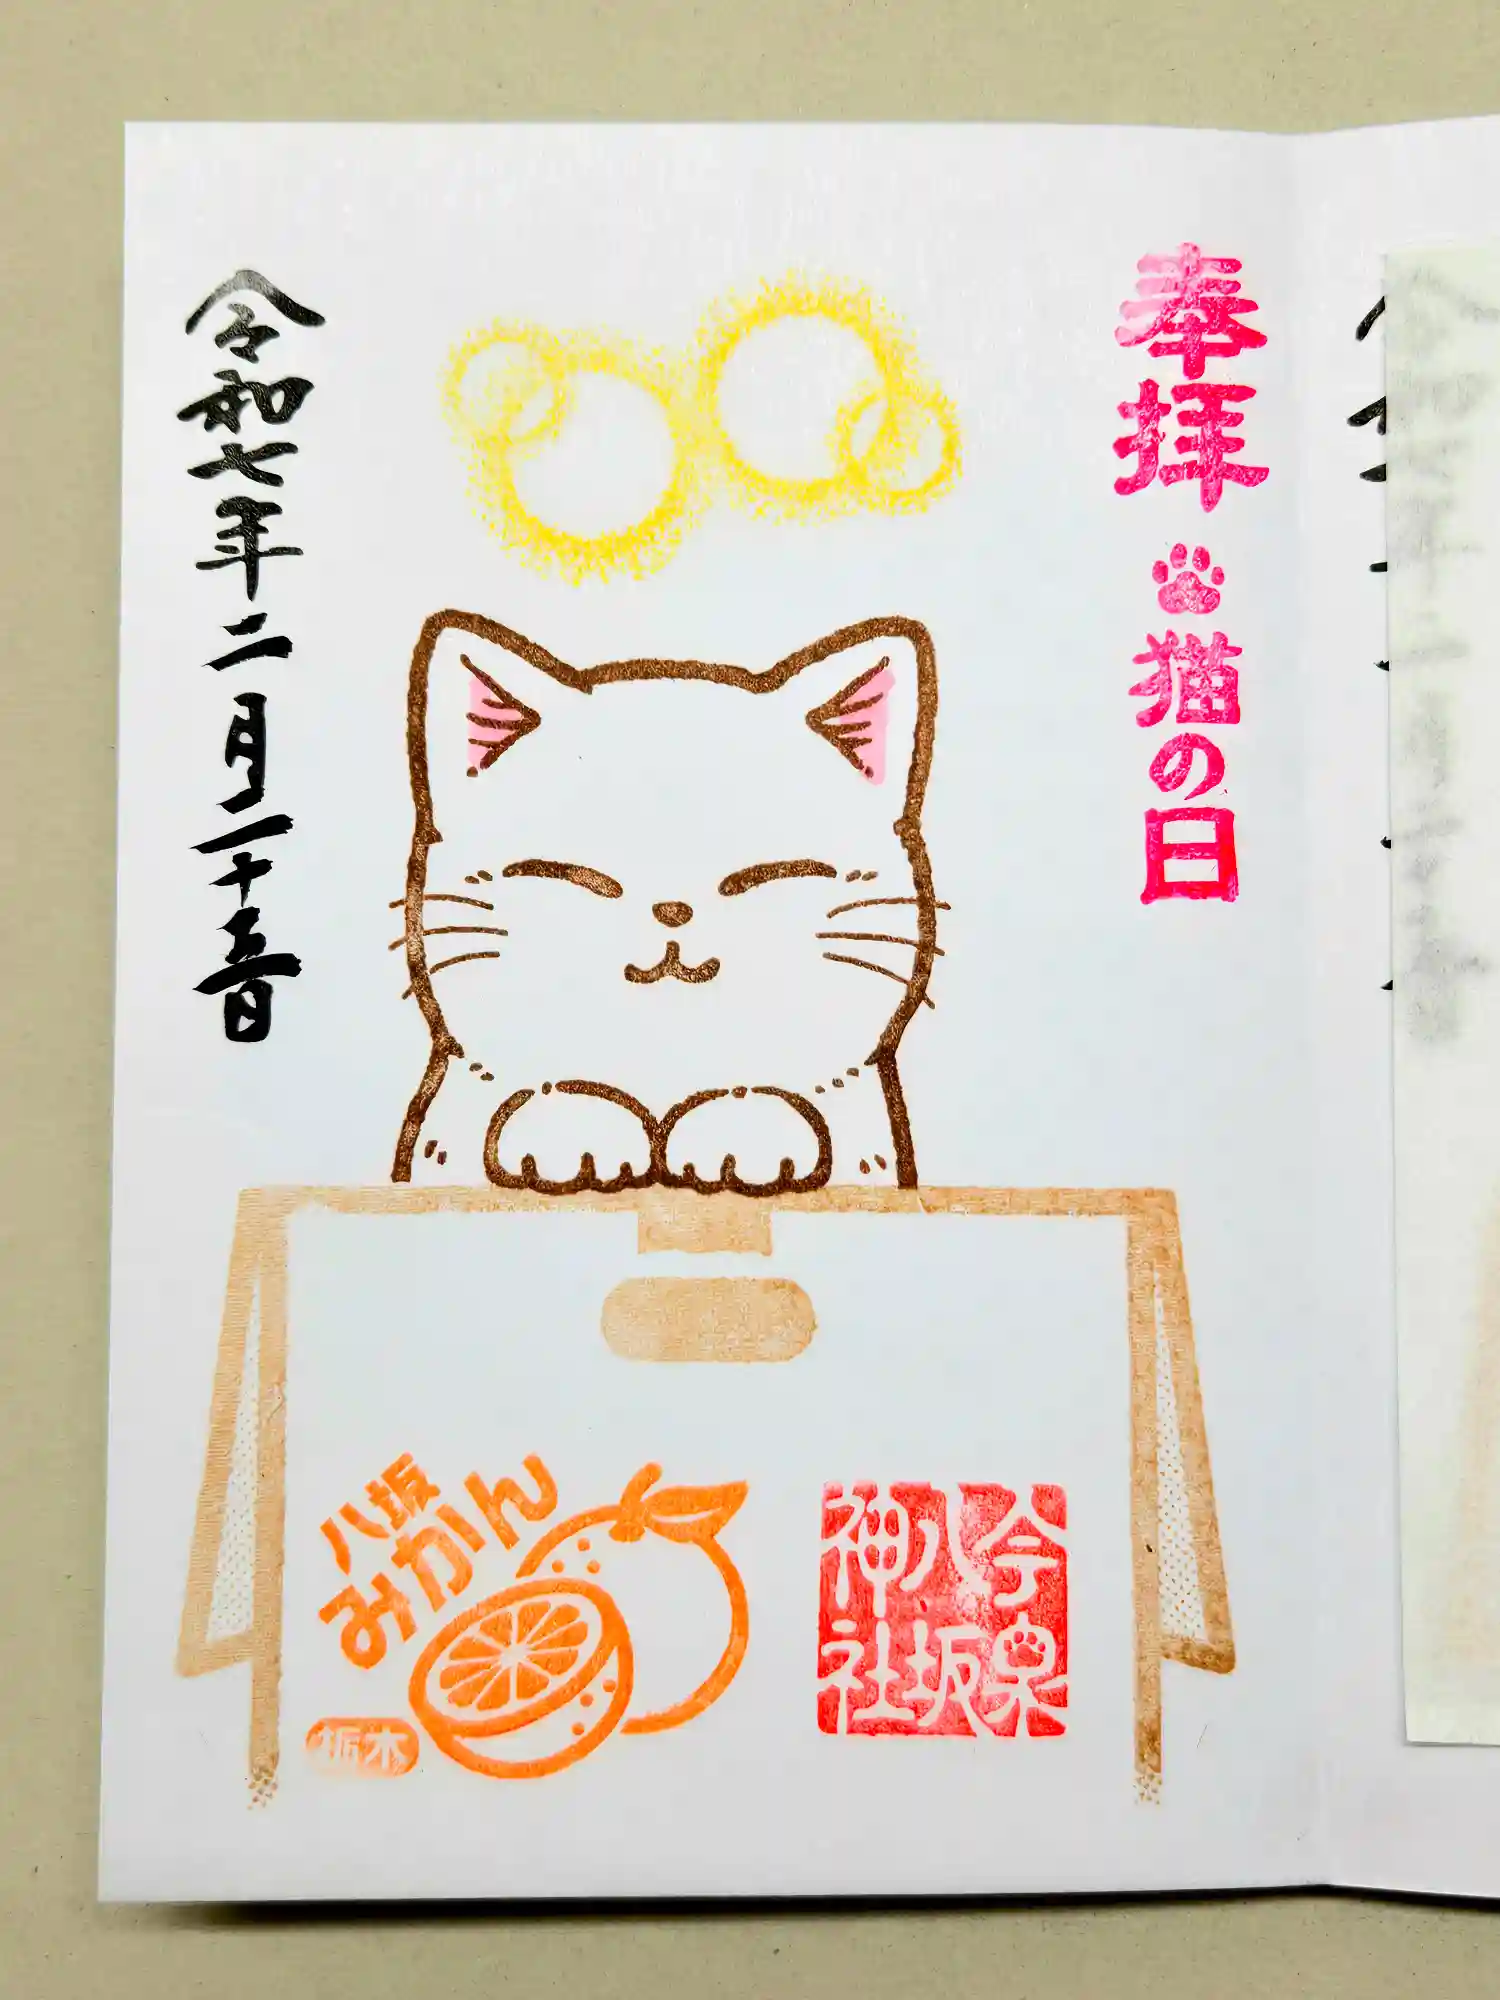 奉拝
猫の日
令和七年二月二十三日
八坂
みかん
栃木
今泉
八坂
神社